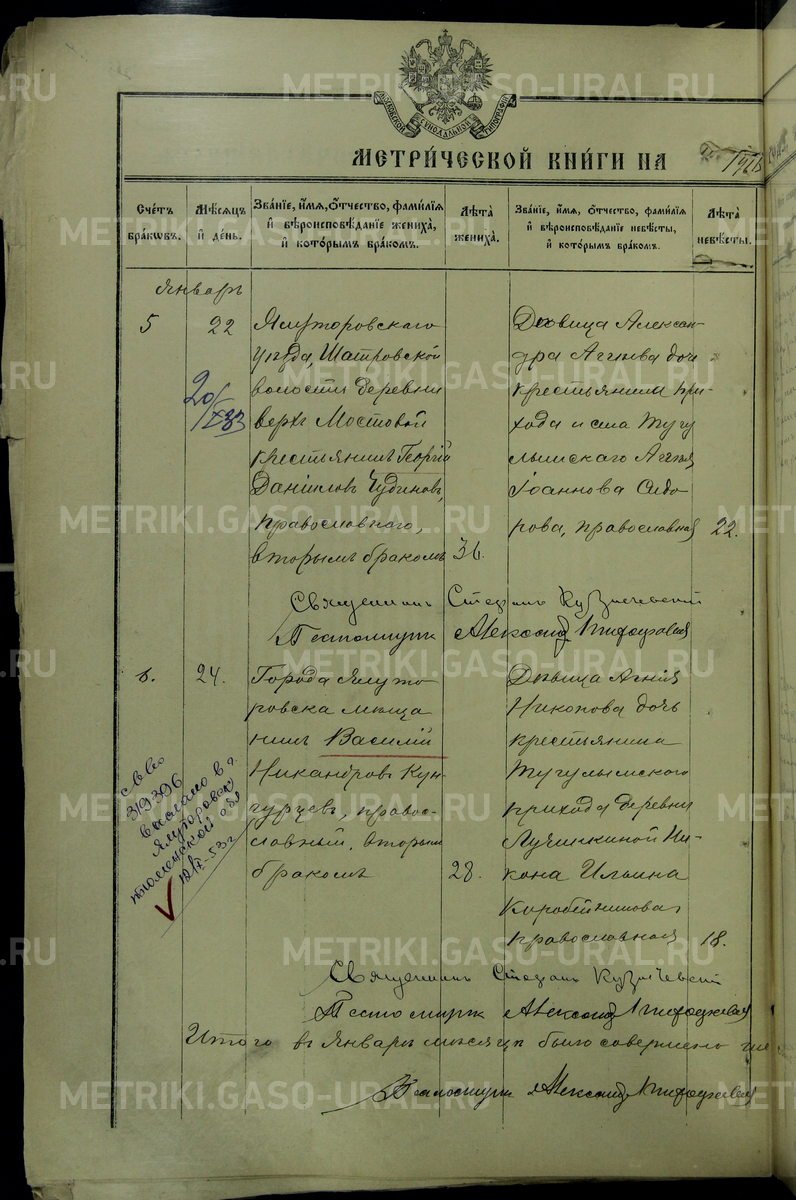 METRIKI.GASO-URAL.RU
МОСКОВСКОЙ СѴНОДАЛЬНОЙ ТИПОГРАФІИ
МЕТРИ́ЧЕСКОЙ КНИ́ГИ НА
Сче́тъ бра́кѡвъ.
Мѣ́сѧцъ и҆ де́нь.
Зва́нїе, и҆́мѧ, ѻ҆́тчество, фами́лїѧ и҆ вѣроисповѣ́данїе жениха̀, и҆ кото́рымъ бра́комъ.
Лѣ́та жениха̀.
Зва́нїе, и҆́мѧ, ѻ҆́тчество, фами́лїѧ и҆ вѣроисповѣ́данїе невѣ́сты, и҆ кото́рымъ бра́комъ.
Лѣ́та невѣ́сты.
Январь
5
22
Ялуторовскаго
уѣзда, Шатровской
волости деревни
верхъ Мостовой
крестьянинъ Георгій
Даніиловъ Чудиновъ,
православнаго,
вторымъ бракомъ
36.
Дѣвица Алексан-
дра Агѣева дочь
крестьянина при-
хода и села Тугу
лымскаго Агѣя
Іоаннова Сидо
рова, православная
22.
Священникъ Стефанъ
Псаломщикъ Александръ
6.
24.
Города Ялуто
ровска мѣща
нинъ Василій
Никандровъ Кун-
гурцевъ, правос-
лавный, вторымъ
бракомъ
28.
Дѣвица Агнія
Никонова дочь
крестьянина
Тугулымскаго
прихода деревни
Лучинкиной Ни-
кона Ильина
Коробейникова,
православная
18.
св во
319396
выслано в г.
Ялуторовск
тюменской обл
Священникъ Стефанъ
Псаломщикъ Александръ
Итого въ Январѣ мѣсяцѣ было совершено
Псаломщикъ Александръ